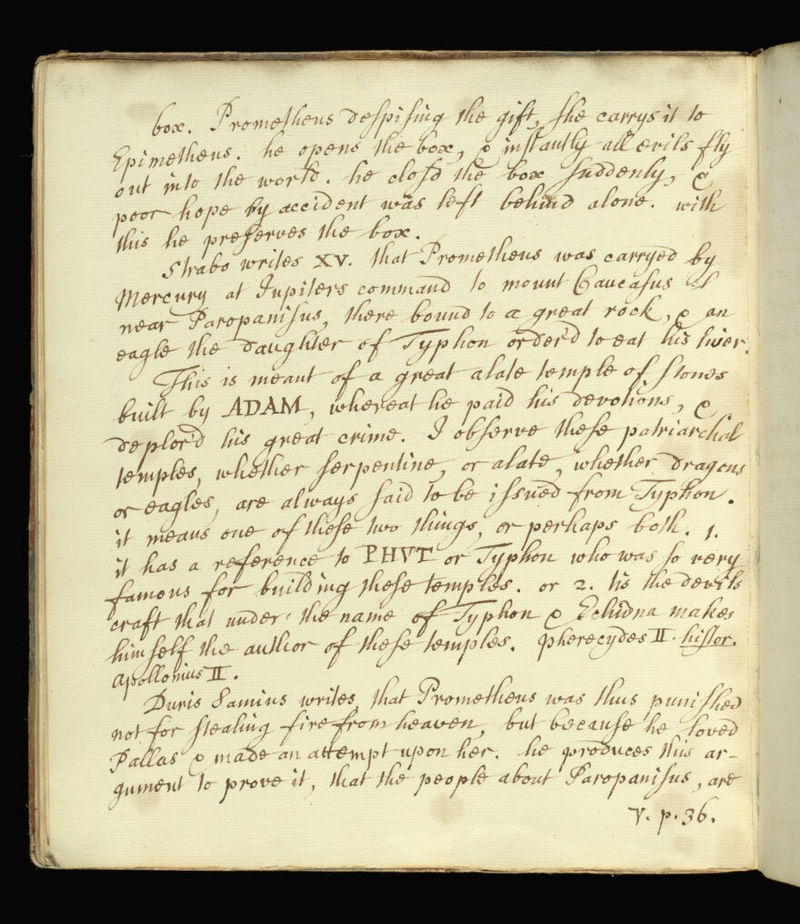 box. Prometheus despising the gift, she carrys it to
Epimetheus. he opens the box, & instantly all evils fly
out into the world. he clos'd the box suddenly, &
poor hope by accident was left behind alone. with
this he preserves the box.
Strabo writes XV. that Prometheus was carryed by
Mercury at Jupiters command to mount Caucasus
near Paropanisus, there bound to a great rock, & an
eagle the daughter of Typhon order'd to eat his liver.
This is meant of a great alate temple of stones
built by ADAM, whereat he paid his devotions, &
deplor'd his great crime. I observe these patriarchal
temples, whether serpentine, or alate, whether dragons
or eagles, are always said to be issued from Typhon.
it means one of these two things, or perhaps both. 1.
it has a reference to PHVT or Typhon who was so very
famous for building these temples. or 2. tis the devils
craft that under the name of Typhon & Echidna makes
himself the author of these temples. Pherecydes II. histor.
Apollonius II.
Duris Samius writes, that Prometheus was thus punished
not for stealing fire from heaven, but because he loved
Pallas & made an attempt upon her. he produces this ar-
gument to prove it, that the people about Paropanisus, are
V. p. 36.